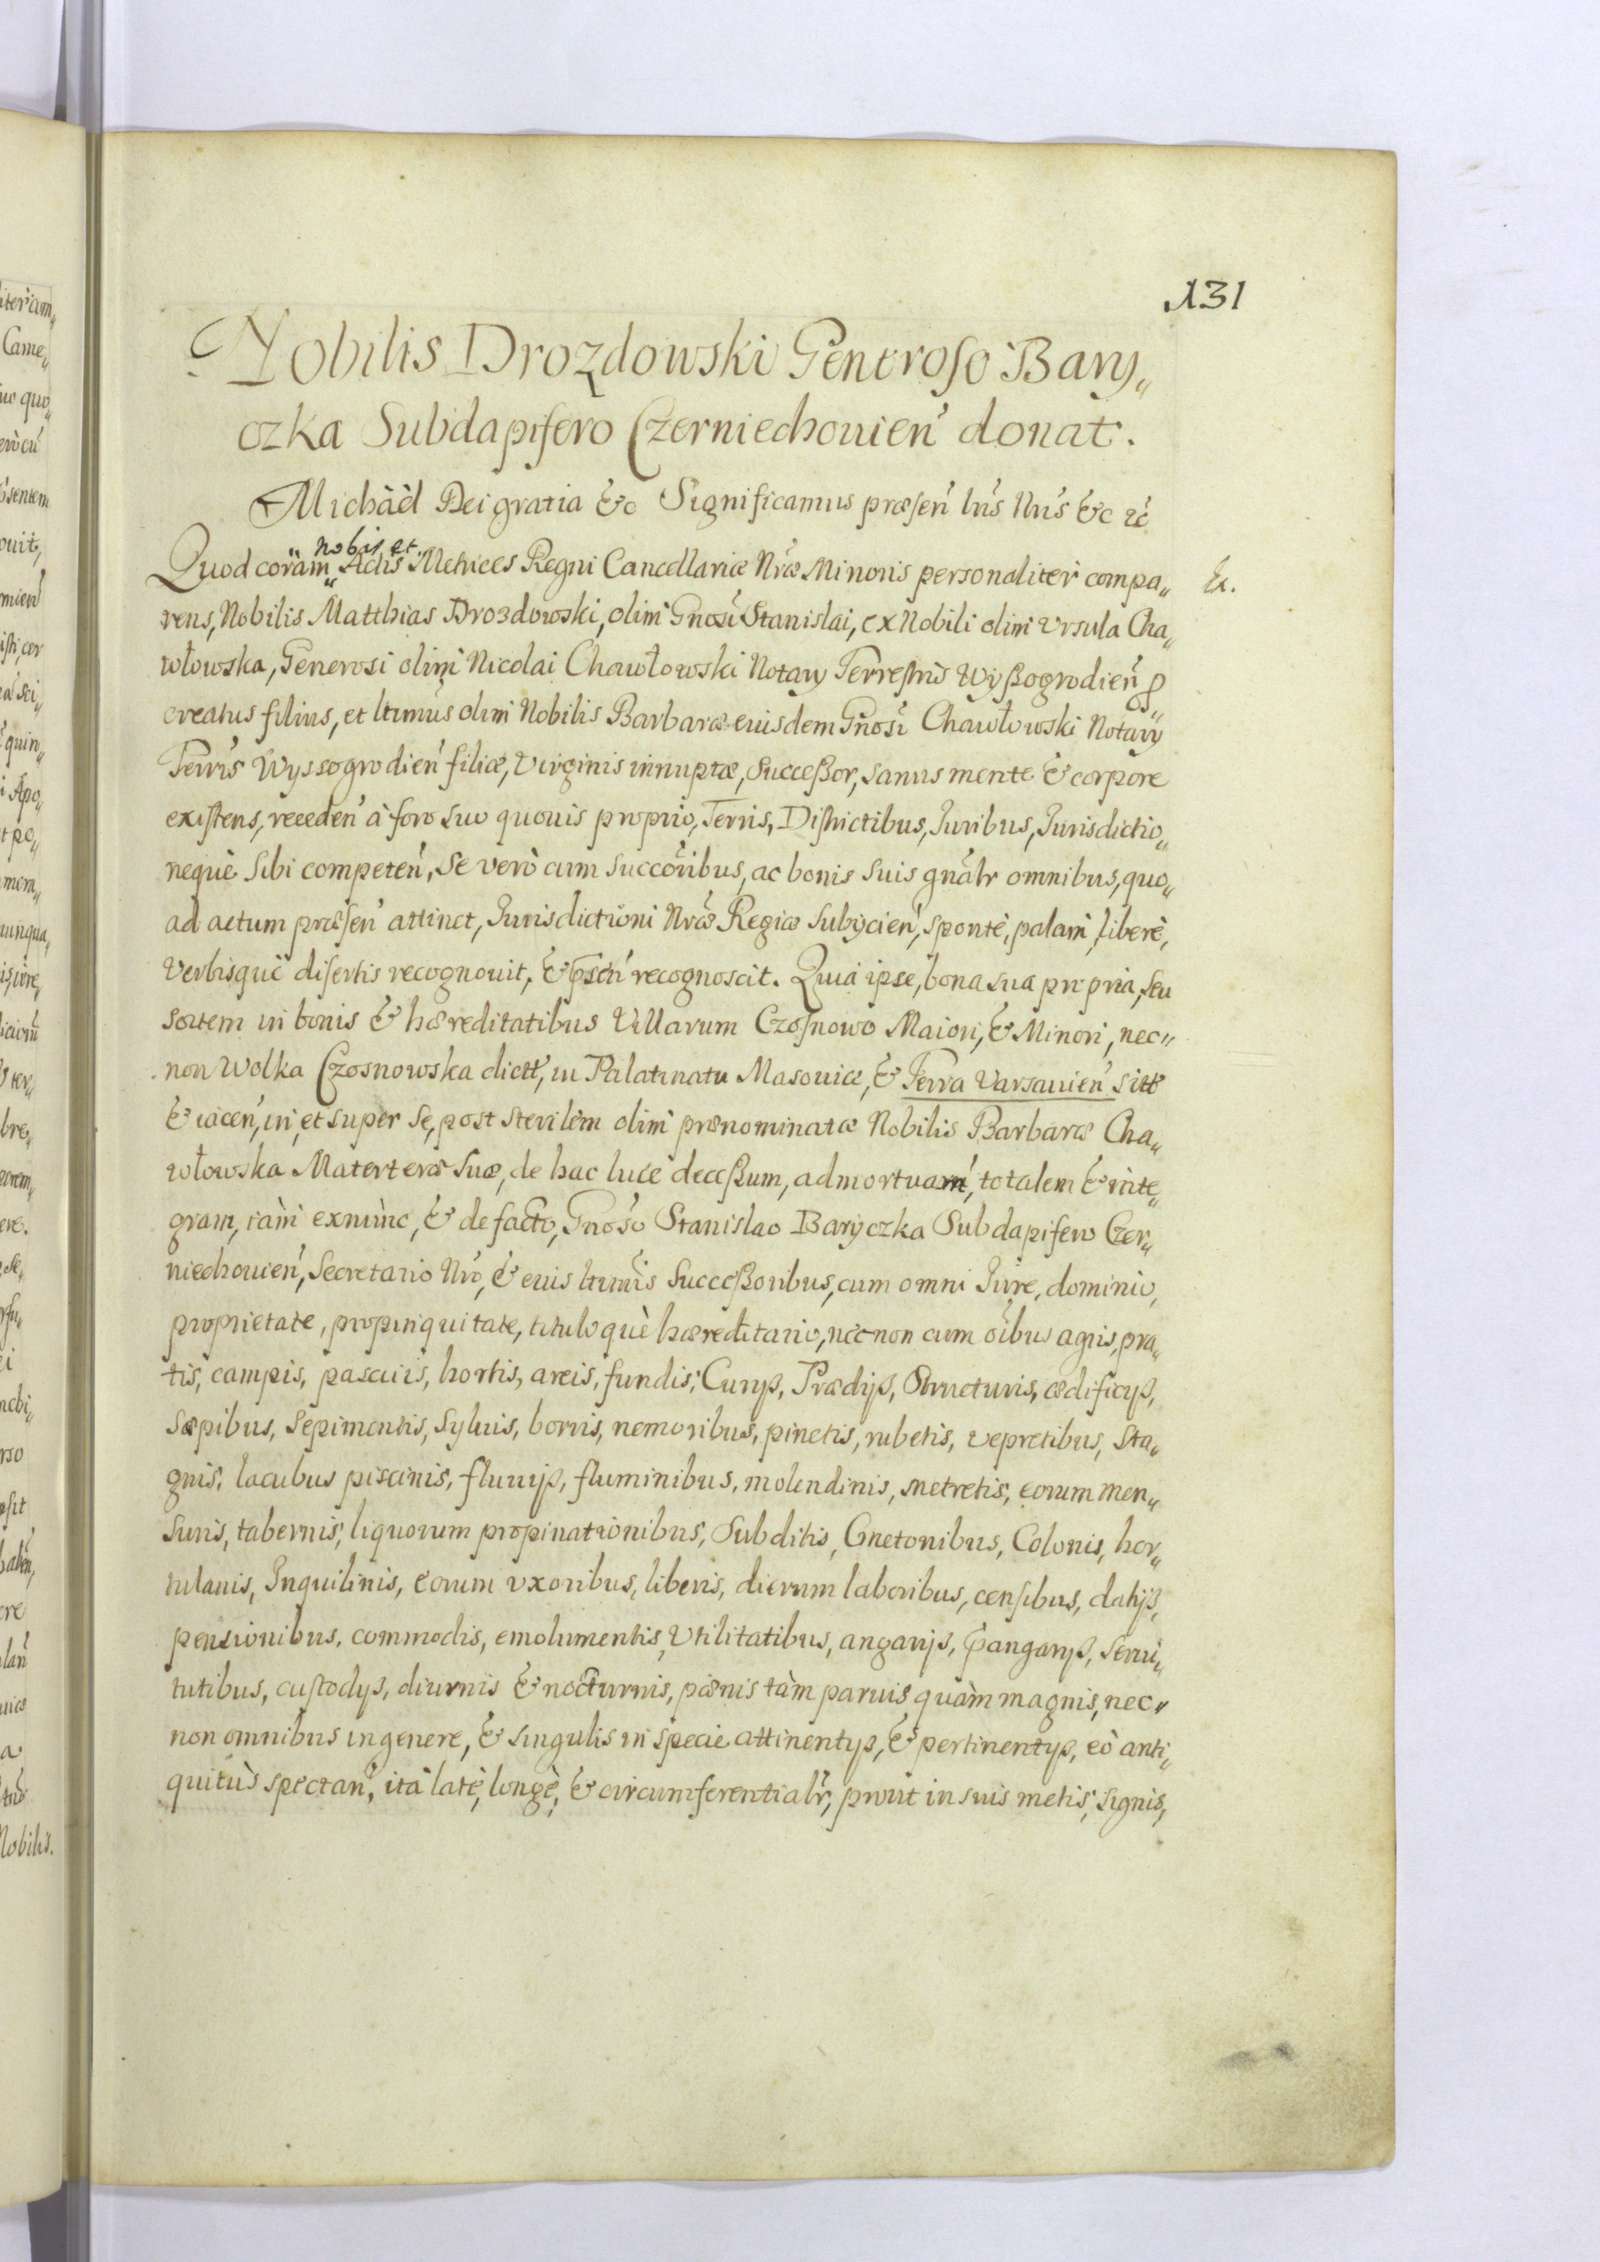 131
Nobilis Drozdowski Generoso Bary„
czka Subdapifero Czerniechouien̄ donat.
Michàèl Dei gratia &c Significamus præsen̄ lrīs Nrīs &c &c̄
nobis et
Quod coràm Actis Metrices Regni Cancellariæ Nr̄æ Minoris personaliter compa„
Ex.
rens, Nobilis Matthias Drozdowski, olim Gnosi Stanislai, ex Nobili olim Vrsula Cha„
włowska, Generosi olim Nicolai Chawłowski Notarÿ Terrestris Wyßogrodien̄ p„
creatus filius, et ltimus olim Nobilis Barbaræ euisdem Gnosi Chawłowski Notarÿ
Terrīs Wyssogrodien̄ filiæ, Virginis innuptæ, Succeßor, sanus mente & corpore
existens, receden̄ à foro suo quouis proprio, Terris, Districtibus, Iuribus, Iurisdictio„
nequè sibi competen̄, Se verò cum Succōribus, ac bonis suis gnālr omnibus, quo„
ad actum præsen̄ attinet, Iurisdictioni Nr̄æ Regiæ Subÿcien̄, spontè, palàm, liberè,
Verbisquè disertis recognouit, & pn̄sen̄ recognoscit. Quià ipse, bona sua propria, seu
sortem in bonis & hæreditatibus Villarum Czosnowo Maiori, & Minori, nec„
non Wolka Czosnowska dictt, in Palatinatu Masouiæ, & Terra Varsauien̄ sitt
& iacen̄, in, et super se, post sterilem olim prænominatæ Nobilis Barbaræ Cha„
włowska Materteræ suæ, de hac luce deceßum, admortuam, totalem & inte„
gram, iàm exnùnc, & de facto, Gnoso Stanislao Baryczka Subdapifero Czer„
niechouien̄, Secretario Nr̄o, & euis ltimis Succeßoribus, cum omni Iure, dominio,
proprietate, propinquitate, tituloquè hæreditario, necnon cum oībus agris, pra„
tis, campis, pascuis, hortis, areis, fundis, Curÿs, Prædÿs, Structuris, ædificÿs,
sæpibus, Sepimentis, Syluis, borris, nemoribus, pinetis, rubetis, vepretibus, Sta„
gnis, lacubus piscinis, fluuÿs, fluminibus, molendinis, metretis, eorum men„
suris, tabernis, liquorum propinationibus, Subditis, Cmetonibus, Colonis, hor„
tulanis, Inquilinis, eorum vxoribus, liberis, dierum laboribus, censibus, datÿs,
pensionibus, commodis, emolumentis, Vtilitatibus, angarÿs, pangarÿs, Serui„
tutibus, custodÿs, diurnis & nocturnis, pænis tàm paruis quàm magnis, nec„
non omnibus in genere, & singulis in specie attinentÿs, & pertinentÿs, eò anti„
quitùs spectan̄, ità latè, longè, & circumferentialr̄, prout in suis metis, signis,